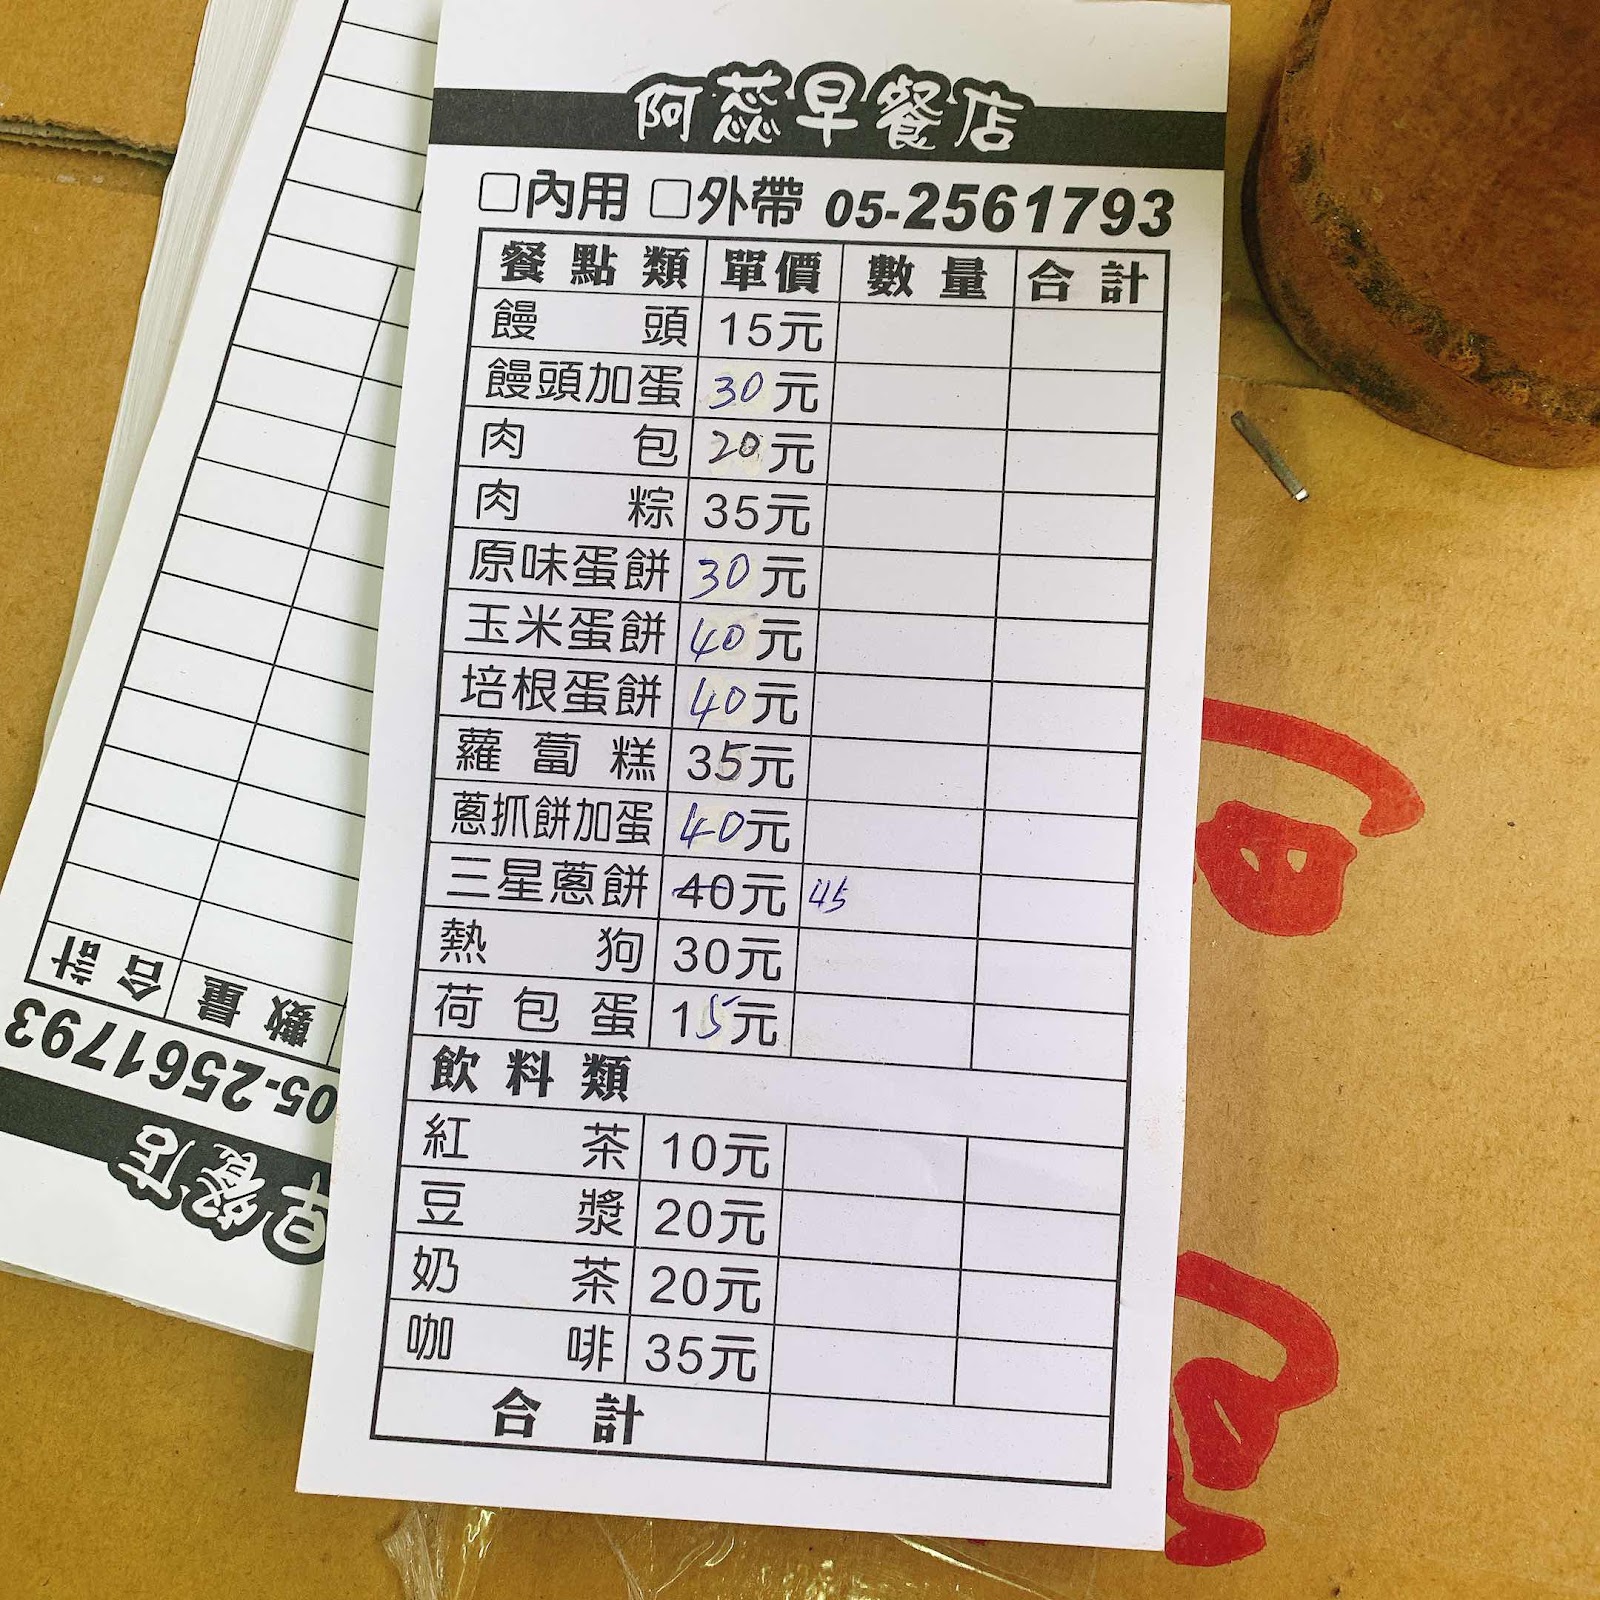 阿蕊早餐店
□內用 □外帶 05-2561793
餐點類 單價 數量 合計
饅頭 15元
饅頭加蛋 30元
肉包 20元
肉粽 35元
原味蛋餅 30元
玉米蛋餅 40元
培根蛋餅 40元
蘿蔔糕 35元
蔥抓餅加蛋 40元
三星蔥餅 40元 45
熱狗 30元
荷包蛋 15元
飲料類
紅茶 10元
豆漿 20元
奶茶 20元
咖啡 35元
合計
數量 合計
05-2561793
早餐店